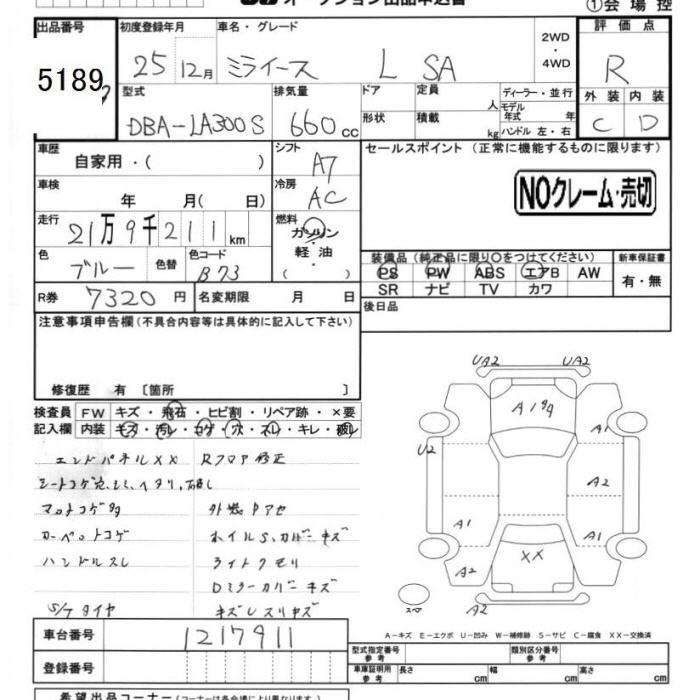 オークション出品申込書
①会場控
出品番号
5189
初度登録年月
25 12月
車名・グレード
ミライース L SA
2WD
・
4WD
評価点
R
外装 内装
C D
型式
DBA-LA300S
排気量
660cc
ドア
形状
定員
人
積載
kg
ディーラー・並行
モデル年式 年
ハンドル 左・右
車歴
自家用・( )
シフト
A7
車検
年 月( 日)
冷房
AC
走行
21万9千211km
燃料
ガソリン
・
軽油
( )
色
ブルー
色替
色コード
B73
R券
7320円
名変期限 月 日
セールスポイント(正常に機能するものに限ります)
NOクレーム・売切
装備品(純正品に限り○をつけてください)
PS PW ABS エアB AW
SR ナビ TV カワ
新車保証書
有・無
後日品
注意事項申告欄(不具合内容等は具体的に記入して下さい)
修復歴 有〔箇所 〕
検査員記入欄
FW キズ・飛石・ヒビ割・リペア跡・×要
内装 キズ・汚レ・コゲ・穴・スレ・キレ・破レ
エンドパネルXX Rフロア修正
シートコゲ穴、シミ、ヘタリ、破レ
マットコゲ 外装色アセ
カーペットコゲ ホイルS、カバーキズ
ハンドルスレ ライトクモリ
Dミラーカバーキズ
S/Tタイヤ キズレスリキズ
UA2 UA2
A1
U2
A1
A2
A1 A1
XX
A2
A2
スペ
A-キズ E-エクボ U-凹み W-補修跡 S-サビ C-腐食 XX-交換済
車台番号
1217911
登録番号
型式指定番号
参考
類別区分番号
参考
車庫証明用
参考
長さ cm 幅 cm 高さ cm
希望出品コーナー(コーナーは各会場により異なります。)